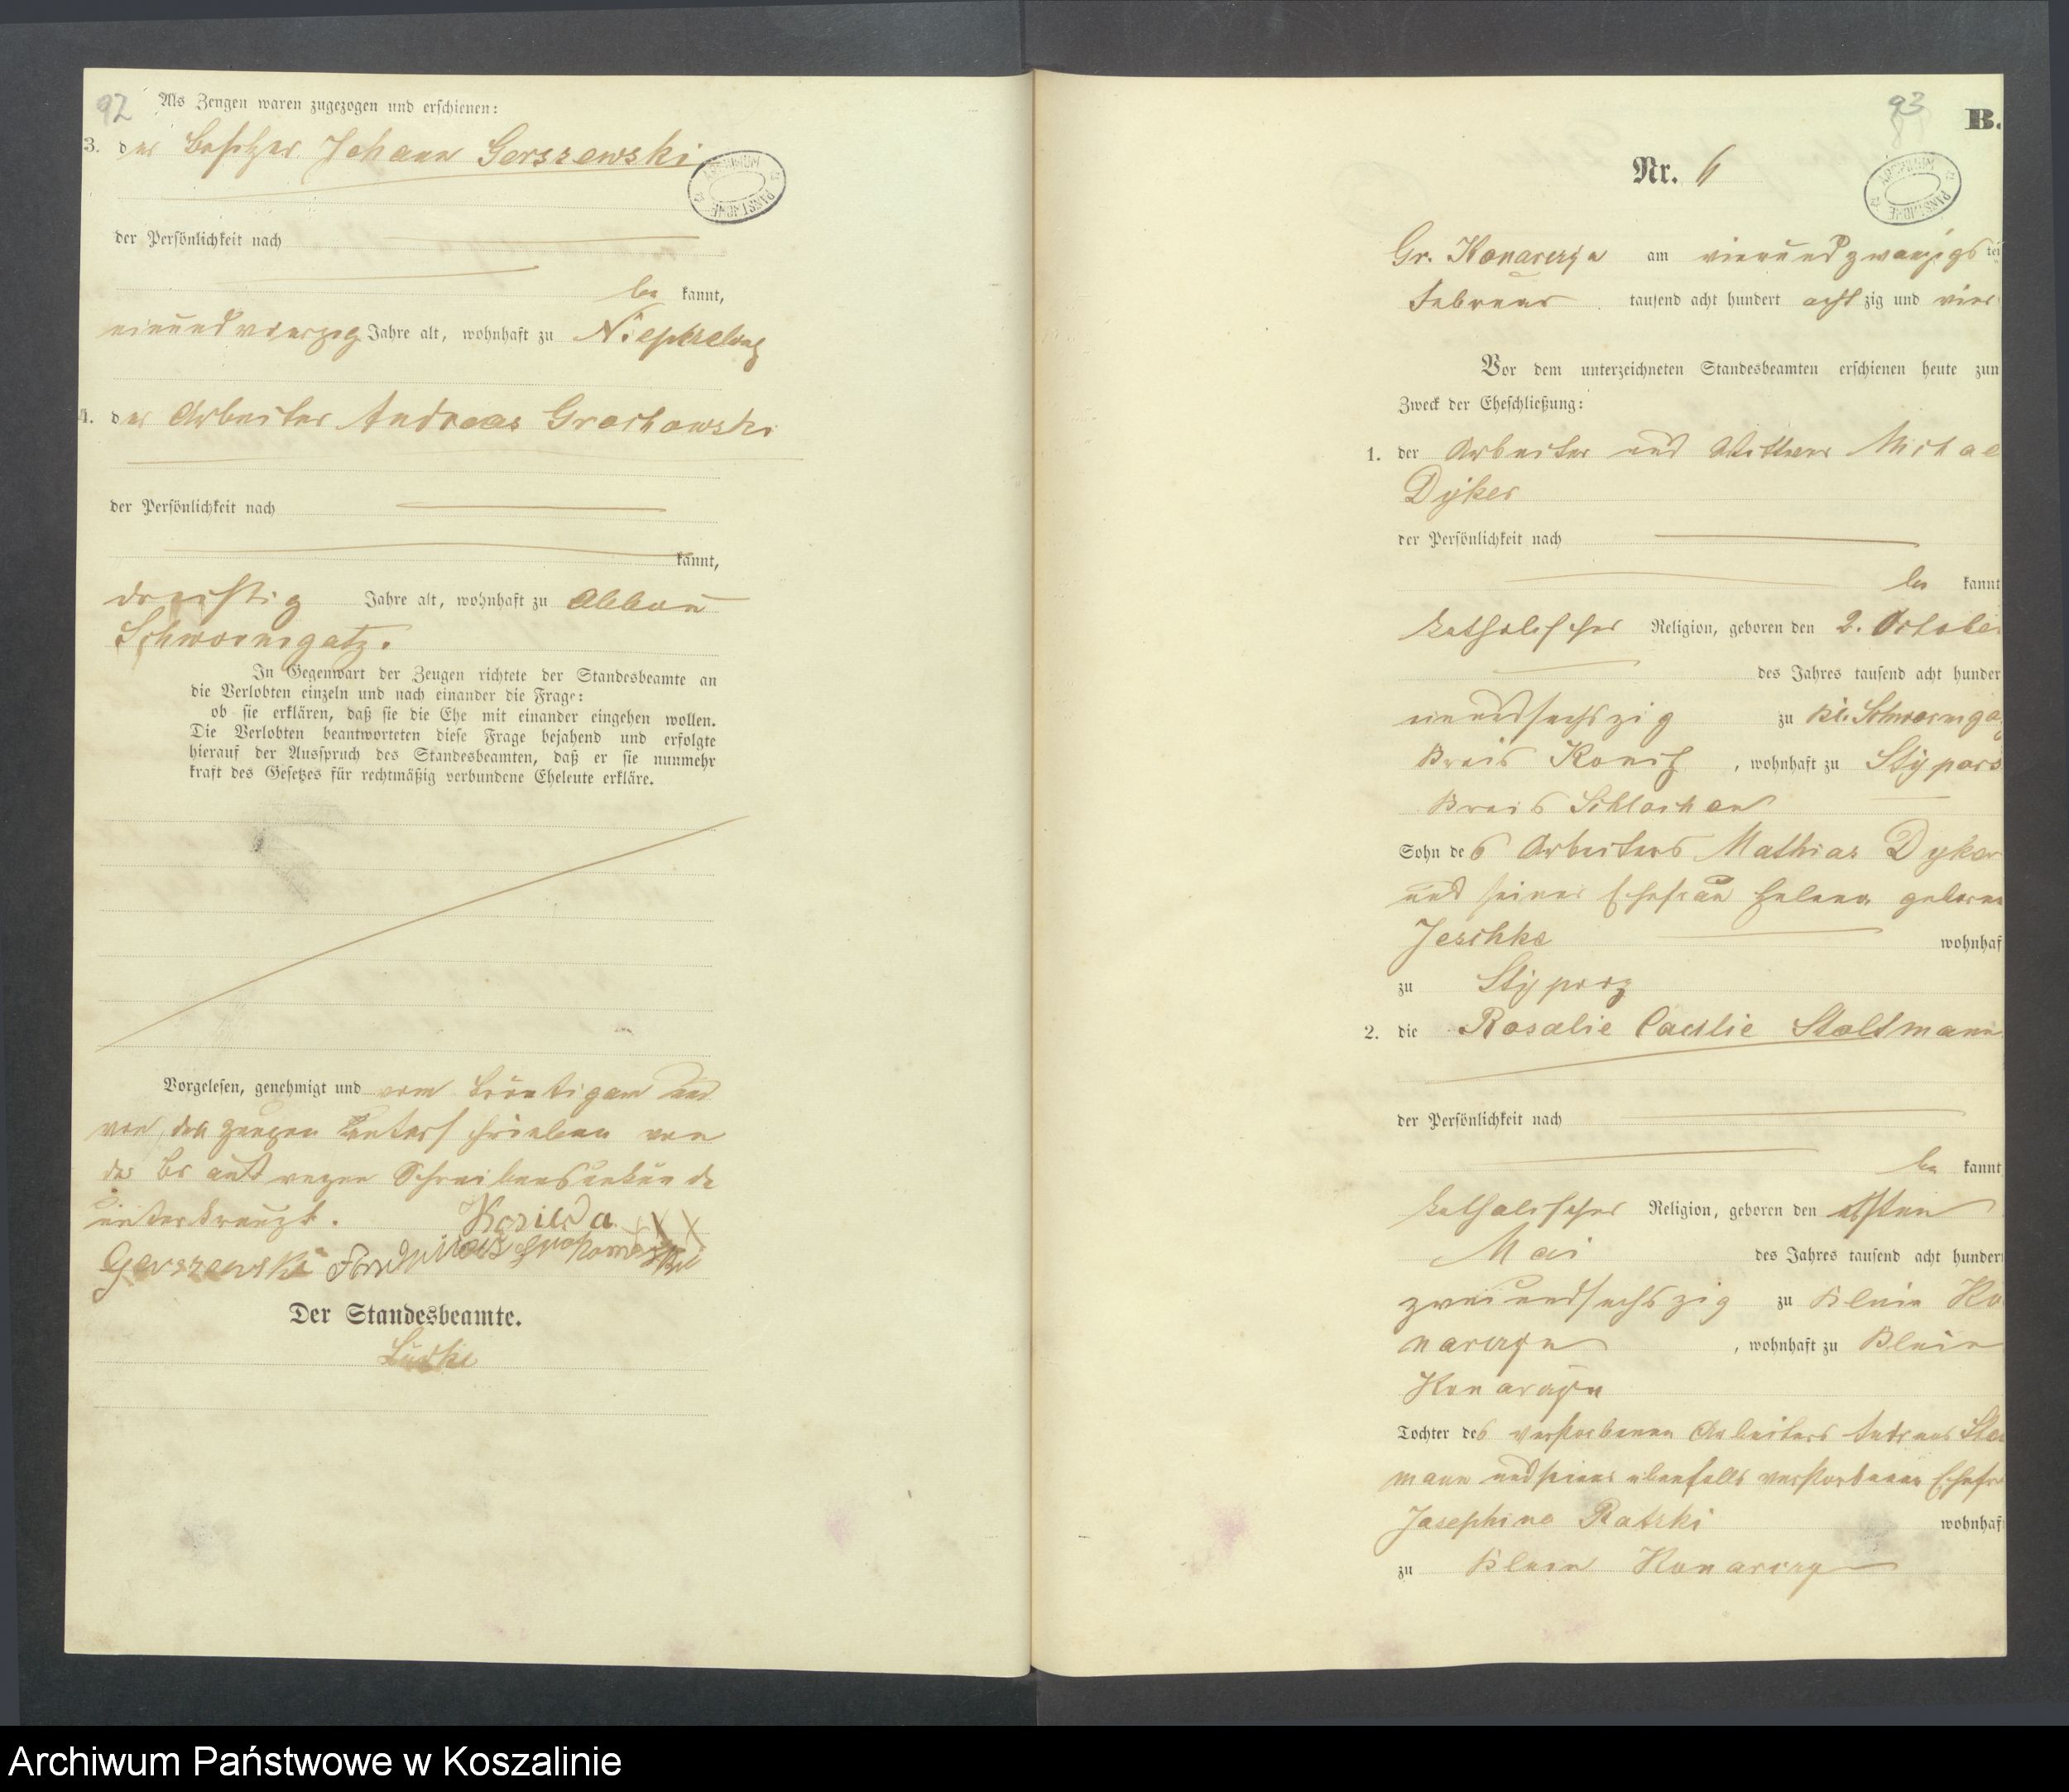 92
Als Zeugen waren zugezogen und erschienen:
3. der Besitzer Johann Gerszewski
der Persönlichkeit nach
be kannt,
einundvierzig Jahre alt, wohnhaft zu
4. der Arbeiter Andreas Grochowski
der Persönlichkeit nach
kannt,
dreißig Jahre alt, wohnhaft zu Abbau
Schwornigatz.
In Gegenwart der Zeugen richtete der Standesbeamte an
die Verlobten einzeln und nach einander die Frage:
ob sie erklären, daß sie die Ehe mit einander eingehen wollen.
Die Verlobten beantworteten diese Frage bejahend und erfolgte
hierauf der Ausspruch des Standesbeamten, daß er sie nunmehr
kraft des Gesetzes für rechtmäßig verbundene Eheleute erkläre.
Vorgelesen, genehmigt und vom Bräutigam und
von den Zeugen unterschrieben von
der Braut wegen Schreibensunkunde
unterkreuzt. XXX
Gerszewski
Der Standesbeamte.
93
B.
Nr. 6
Gr. Konarczyn am vierundzwanzigs ten
Februar tausend acht hundert acht zig und vier
Vor dem unterzeichneten Standesbeamten erschienen heute zun
Zweck der Eheschließung:
1. der Arbeiter und Wittwer Michae
Dyker
der Persönlichkeit nach
be kannt
katholischer Religion, geboren den 2. October
des Jahres tausend acht hunder
einundsechszig zu Kl. Schworniga
Kreis Konitz, wohnhaft zu
Kreis Schlochau
Sohn des Arbeiters Mathias Dyker
und seiner Ehefrau Helena geborne
Jeschke wohnhaf
zu
2. die Rosalie Caecilie Stoltmann
der Persönlichkeit nach
be kannt
katholischer Religion, geboren den
Mai des Jahres tausend acht hunder
zweiundsechszig zu Klein Ko
narczyn, wohnhaft zu Klein
Konarczyn
Tochter des verstorbenen Arbeiters Andreas Sto
mann und seiner ebenfalls verstorbenen Ehefr
Josephine Ratzki wohnhaf
zu Klein Konarczyn
Archiwum Państwowe w Koszalinie